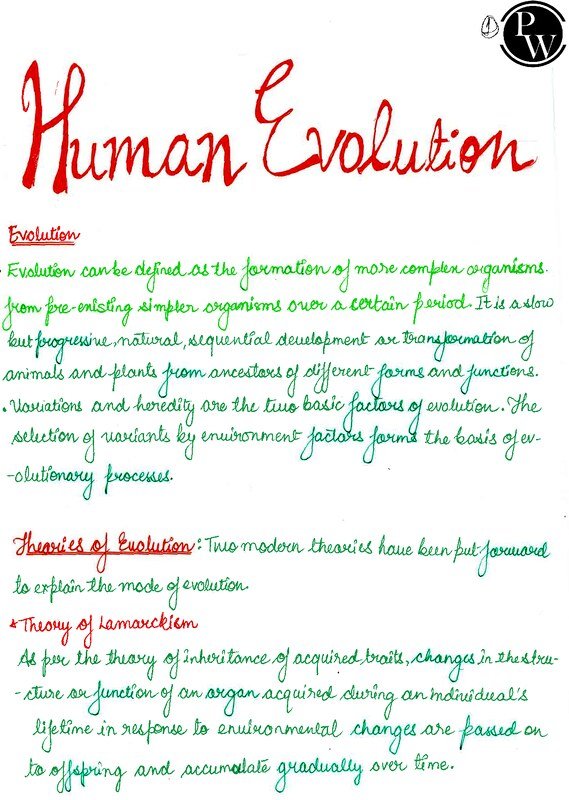 1
PW
Human Evolution
Evolution
• Evolution can be defined as the formation of more complex organisms
from pre-existing simpler organisms over a certain period. It is a slow
but progressive, natural, sequential development or transformation of
animals and plants from ancestors of different forms and functions.
• Variations and heredity are the two basic factors of evolution. The
selection of variants by environment factors forms the basis of ev-
-olutionary processes.
Theories of Evolution: Two modern theories have been put forward
to explain the mode of evolution.
* Theory of Lamarckism
As per the theory of inheritance of acquired traits, changes in the stru-
-cture or function of an organ acquired during an individual's
lifetime in response to environmental changes are passed on
to offspring and accumulate gradually over time.